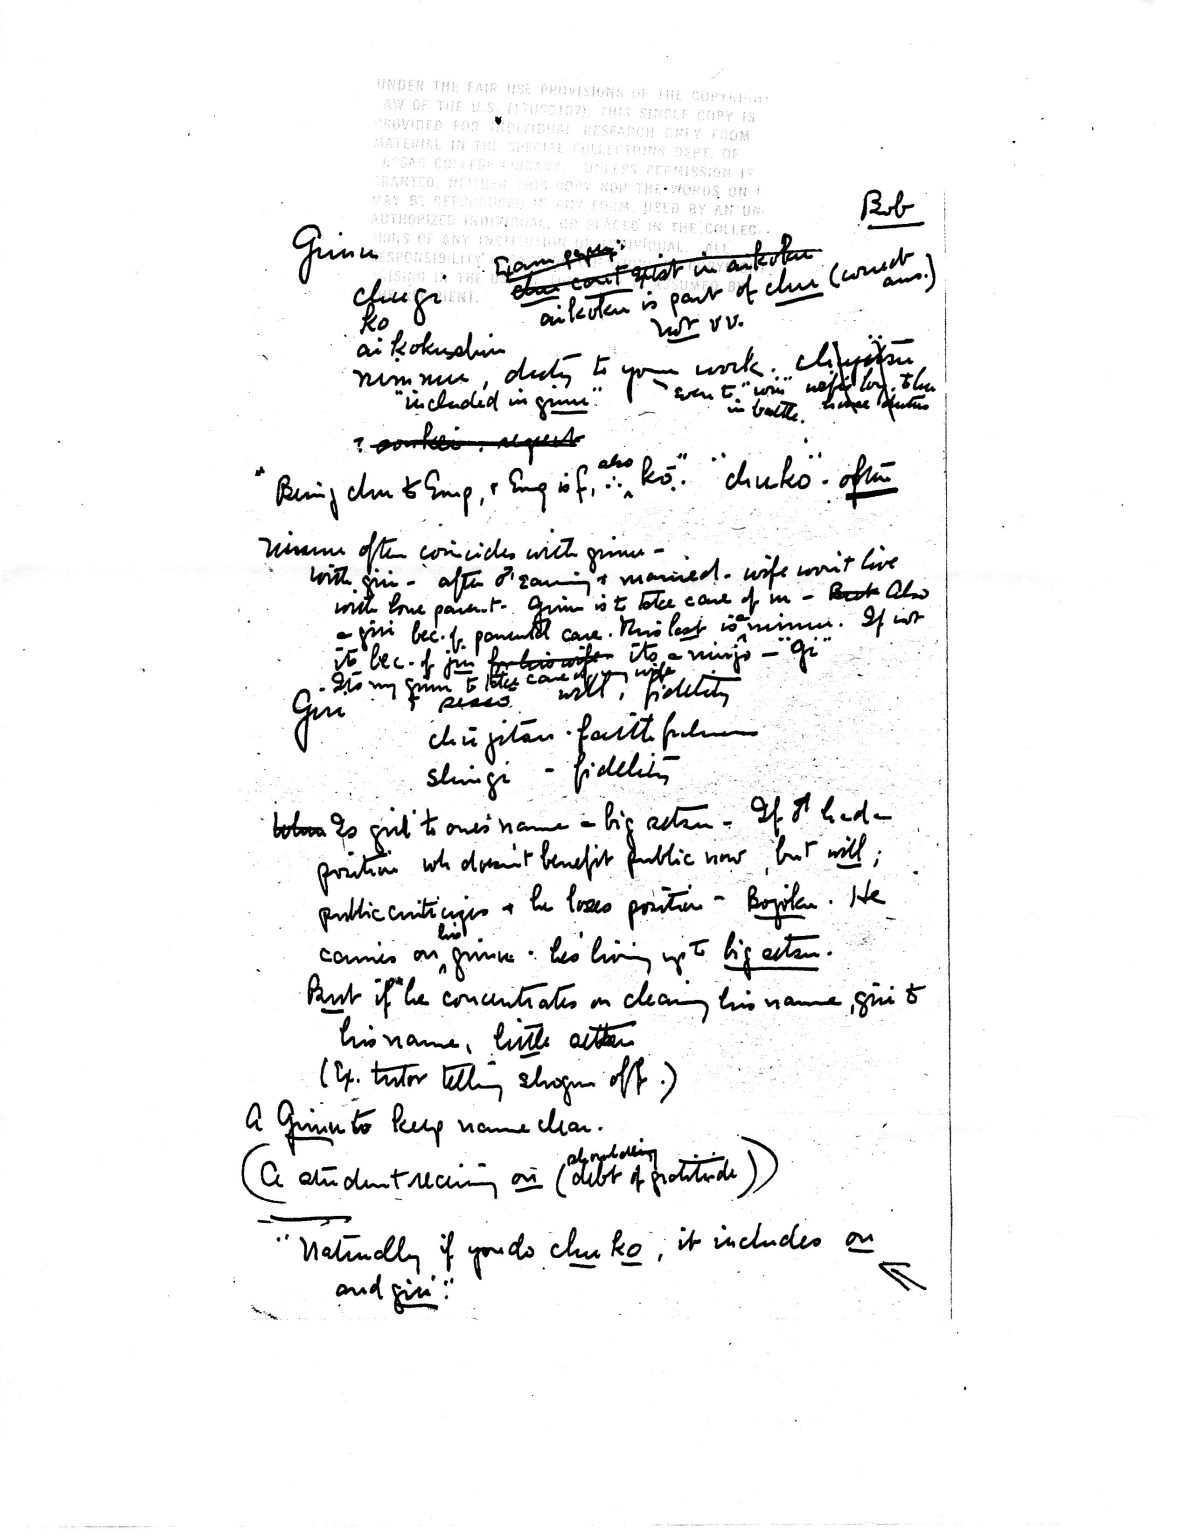 UNDER THE FAIR USE PROVISIONS OF THE COPYRIGHT
LAW OF THE U.S. (17USC107), THIS SINGLE COPY IS
PROVIDED FOR INDIVIDUAL RESEARCH ONLY FROM
MATERIAL IN THE SPECIAL COLLECTIONS DEPT. OF
VASSAR COLLEGE LIBRARY. UNLESS PERMISSION IS
GRANTED, NEITHER THIS COPY NOR THE WORDS ON I
MAY BE REPRODUCED IN ANY FORM, USED BY AN UN-
AUTHORIZED INDIVIDUAL, OR PLACED IN THE COLLEC-
TIONS OF ANY INSTITUTION OR INDIVIDUAL. ALL
RESPONSIBILITY
Bob
Gimu
chugi
ko
aikokushin
aikoku is part of chu (correct ans.)
not vv.
nimmu, duty to your work.
"included in gimu"
even to "win"
in battle.
"Being chu to Emp, & Emp is f, ∴ also kō." "chuko" - often
nimmu often coincides with gimu -
with giri - after ♂ earning & married - wife won't live
with love parent - Gimu is to take care of m - Also
a giri bec. of parental care. This last is a nimmu. If not
its bec. of jin its a ninjo - "Gi"
- Its my gimu to take care of my wife
Giri
will, fidelity
chūjitsu - faithfulness
shingi - fidelity
Is giri to ones name a big setsu - If ♂ had a
position wh doesn't benefit public now, but will;
public criticizes & he loses position -
He
carries on his gimu. hes living up to big setsu.
But if he concentrates on clearing his name, giri to
his name, little setsu
(Ex. tutor telling shogun off.)
A Gimu to keep name clear.
(A student receiving on (shouldering debt of gratitude))
"Naturally if you do chu ko, it includes on
and giri".